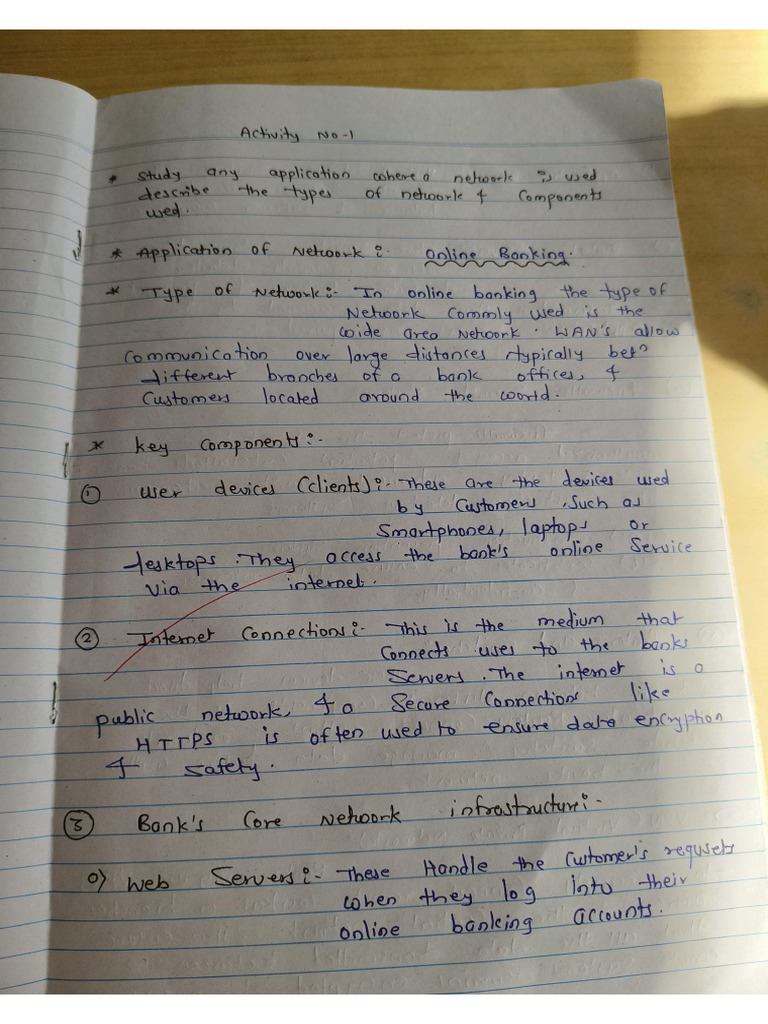 Activity No-1
* Study any application where a network is used
describe the types of network & Components
used.
* Application of Network :- Online Banking.
* Type of Network :- In online banking the type of
Network Commly used is the
wide area Network. WAN's allow
Communication over large distances, typically betn
different branches of a bank offices, &
Customers located around the world.
* Key Components :-
① User devices (clients) :- These are the devices used
by Customers, Such as
Smartphones, laptops or
desktops. They access the bank's online Service
via the internet.
② Internet Connections :- This is the medium that
Connects uses to the banks
Servers. The internet is a
public network, & a Secure Connections like
HTTPS is often used to ensure data encryption
& safety.
③ Bank's Core Network infrastructure :-
a) Web Servers :- These Handle the Customer's requsets
when they log into their
online banking accounts.